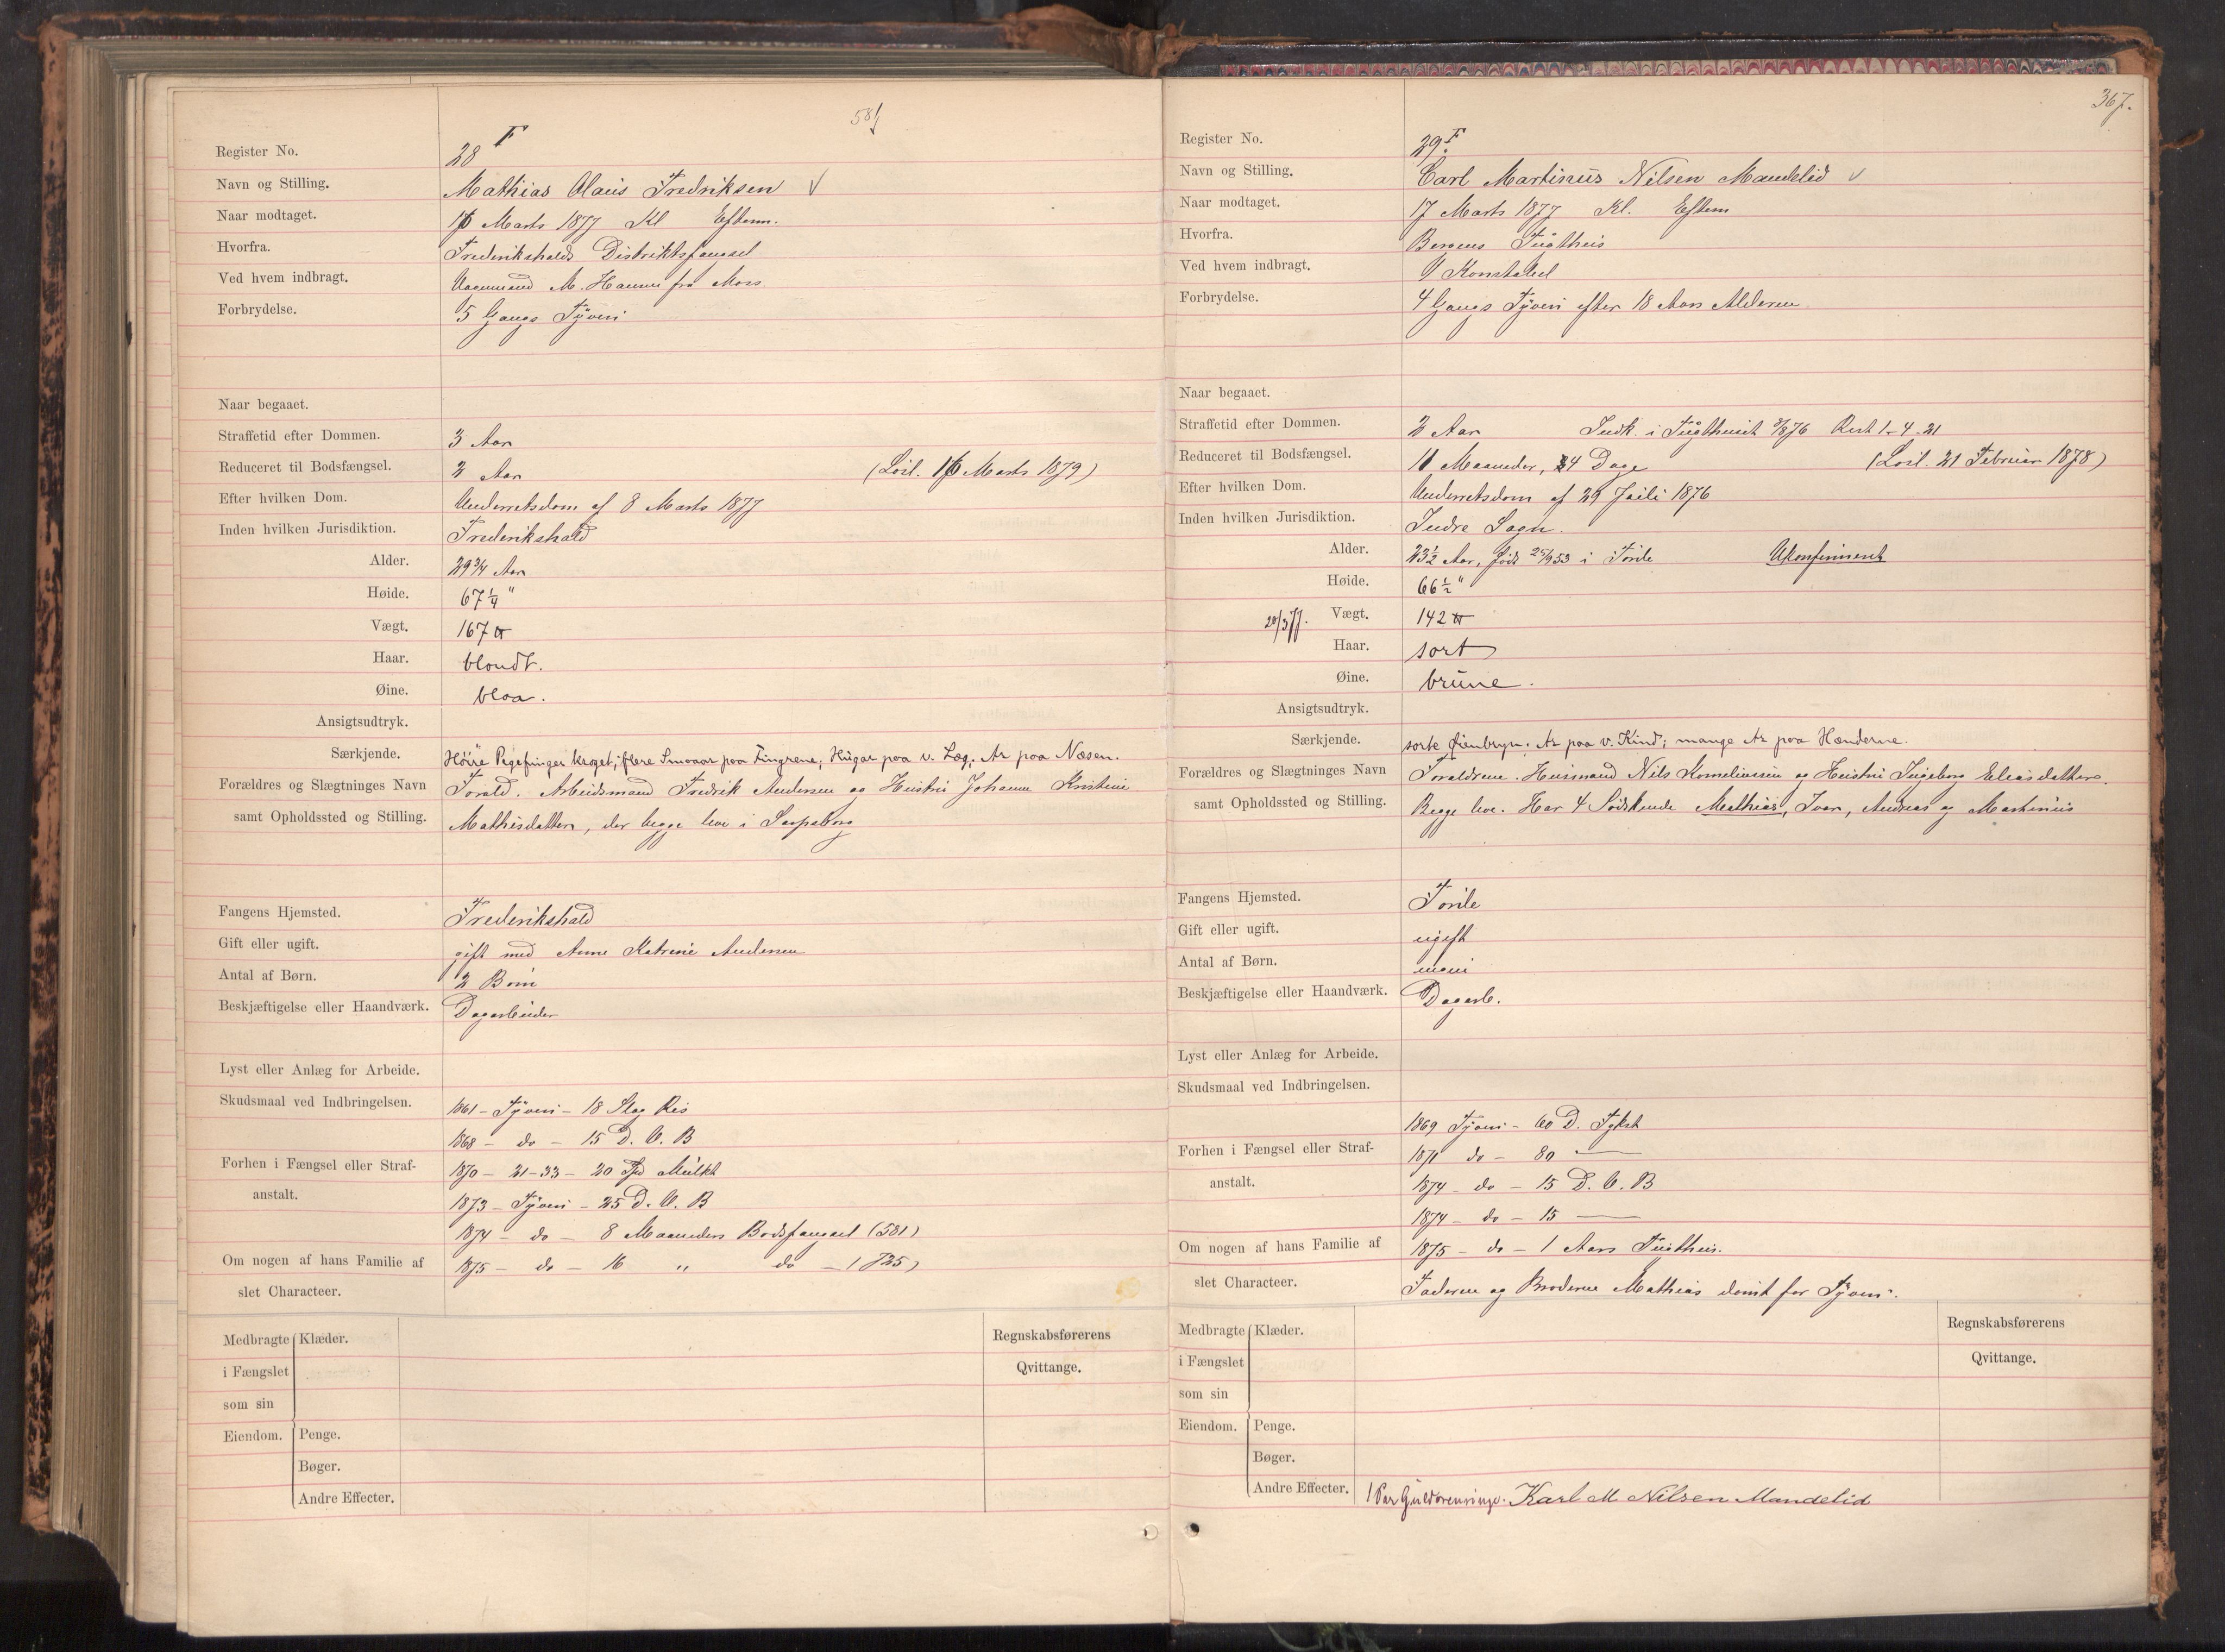 58/
Register No. 28 F
Navn og Stilling. Mathias Olaus Fredriksen V
Naar modtaget. 16 Marts 1877 Kl Efterm.
Hvorfra. Frederikshalds Distriktsfængsel
Ved hvem indbragt. M. Hansen fra Moss
Forbrydelse. 5 Gangs Tyveri
Naar begaaet.
Straffetid efter Dommen. 3 Aar
Reduceret til Bodsfængsel. 2 Aar (Løsl. 16 Marts 1879)
Efter hvilken Dom. Underretsdom af 8 Marts 1877
Inden hvilken Jurisdiktion. Frederikshald
Alder. 29 3/4 Aar
Høide. 67 1/4 "
Vægt. 167 ℔
Haar. blondt.
Øine. blaa.
Ansigtsudtryk.
Særkjende. Høire Pegefinger kroget; flere Smaaar paa Fingrene; Hugar paa v. Læg. Ar paa Næsen.
Forældres og Slægtninges Navn Foræld. Arbeidsmand Fredrik Andersen og Hustru Johanne Kristine
samt Opholdssted og Stilling. Mathisdatter, der begge leve i Sarpsborg
Fangens Hjemsted. Frederikshald
Gift eller ugift. gift med Anne Katrine Andersen
Antal af Børn. 2 Børn
Beskjæftigelse eller Haandværk. Dagarbeider
Lyst eller Anlæg for Arbeide.
Skudsmaal ved Indbringelsen. 1861 – Tyveri – 18 Slag Ris
1868 – do – 15 D. V. B
Forhen i Fængsel eller Straf- 1870 – 21-33 – 20 Spd Mulkt
anstalt. 1873 – Tyveri – 25 D. V. B
1874 – do – 8 Maaneders Bodsfængsel (581)
Om nogen af hans Familie af 1875 – do – 16 " do – (725)
slet Characteer.
Medbragte Klæder. Regnskabsførerens
i Fængslet Qvittange.
som sin
Eiendom. Penge.
Bøger.
Andre Effecter.
367.
Register No. 29 F.
Navn og Stilling. Carl Martinus Nilsen Mandelid V
Naar modtaget. 17 Marts 1877 Kl. Efterm
Hvorfra. Bergens Tugthus
Ved hvem indbragt. 1 Konstabel
Forbrydelse. 4 Gangs Tyveri efter 18 Aars Alderen
Naar begaaet.
Straffetid efter Dommen. 2 Aar Indk. i Tugthuset 8/8 76 Rest 1-4-21
Reduceret til Bodsfængsel. 11 Maaneder, 4 Dage (Løsl. 21 Februar 1878)
Efter hvilken Dom. Underretsdom af 29 Juli 1876
Inden hvilken Jurisdiktion. Indre Sogn.
Alder. 23 1/2 Aar, født 25/9 53 i Førde Ukonfirmeret
Høide. 66 1/2 "
20/3 77. Vægt. 142 ℔
Haar. sort
Øine. brune.
Ansigtsudtryk.
Særkjende. sorte Øienbryn; Ar paa v. Kind; mange Ar paa Hænderne.
Forældres og Slægtninges Navn Forældrene. Husmand Nils Korneliussen og Hustru Ingeborg Eliasdatter.
samt Opholdssted og Stilling. Begge leve. Har 4 Sødskende Mathias, Ivar, Andreas og Martinus
Fangens Hjemsted. Førde
Gift eller ugift. ugift
Antal af Børn. ingen
Beskjæftigelse eller Haandværk. Dagarb.
Lyst eller Anlæg for Arbeide.
Skudsmaal ved Indbringelsen.
1869 Tyveri – 60 D. Tgkst
Forhen i Fængsel eller Straf- 1871 do – 80 —
anstalt. 1874 – do – 15 D. V. B
1874 – do – 15 —
Om nogen af hans Familie af 1875 – do – 1 Aars Tugthus.
slet Characteer. Faderen og Broderen Mathias dømt for Tyveri.
Medbragte Klæder. Regnskabsførerens
i Fængslet Qvittange.
som sin
Eiendom. Penge.
Bøger.
Andre Effecter. 1 Par Guldørenringe. Karl M Nilsen Mandelid